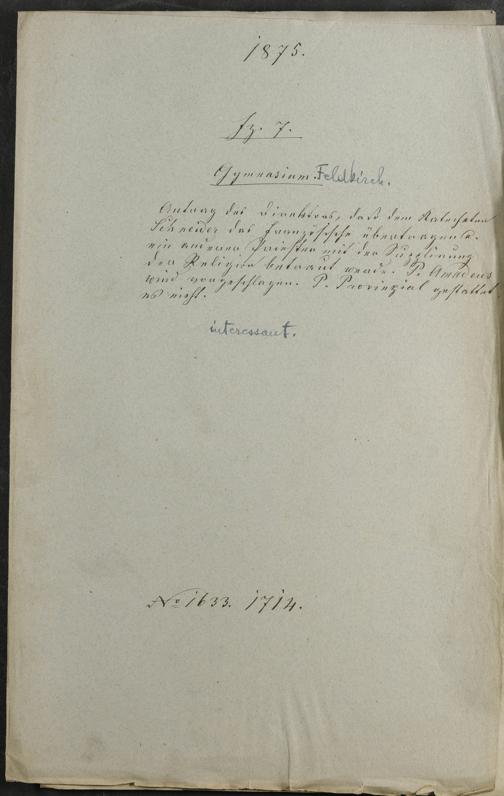 1875.
fz. 7.
Gymnasium. Feldkirch.
Antrag des Direktors, daß dem Katecheten
Schneider das Französische übertragen u.
ein anderer Priester mit der Supplirung
der Religion betraut werde. P. Amadeus
wird vorgeschlagen. P. Provinzial gestattet
es nicht.
interessant.
No 1633. 1714.